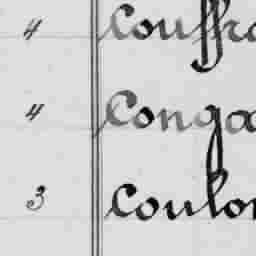 4 Couffra
4 Conga
3 Coulon